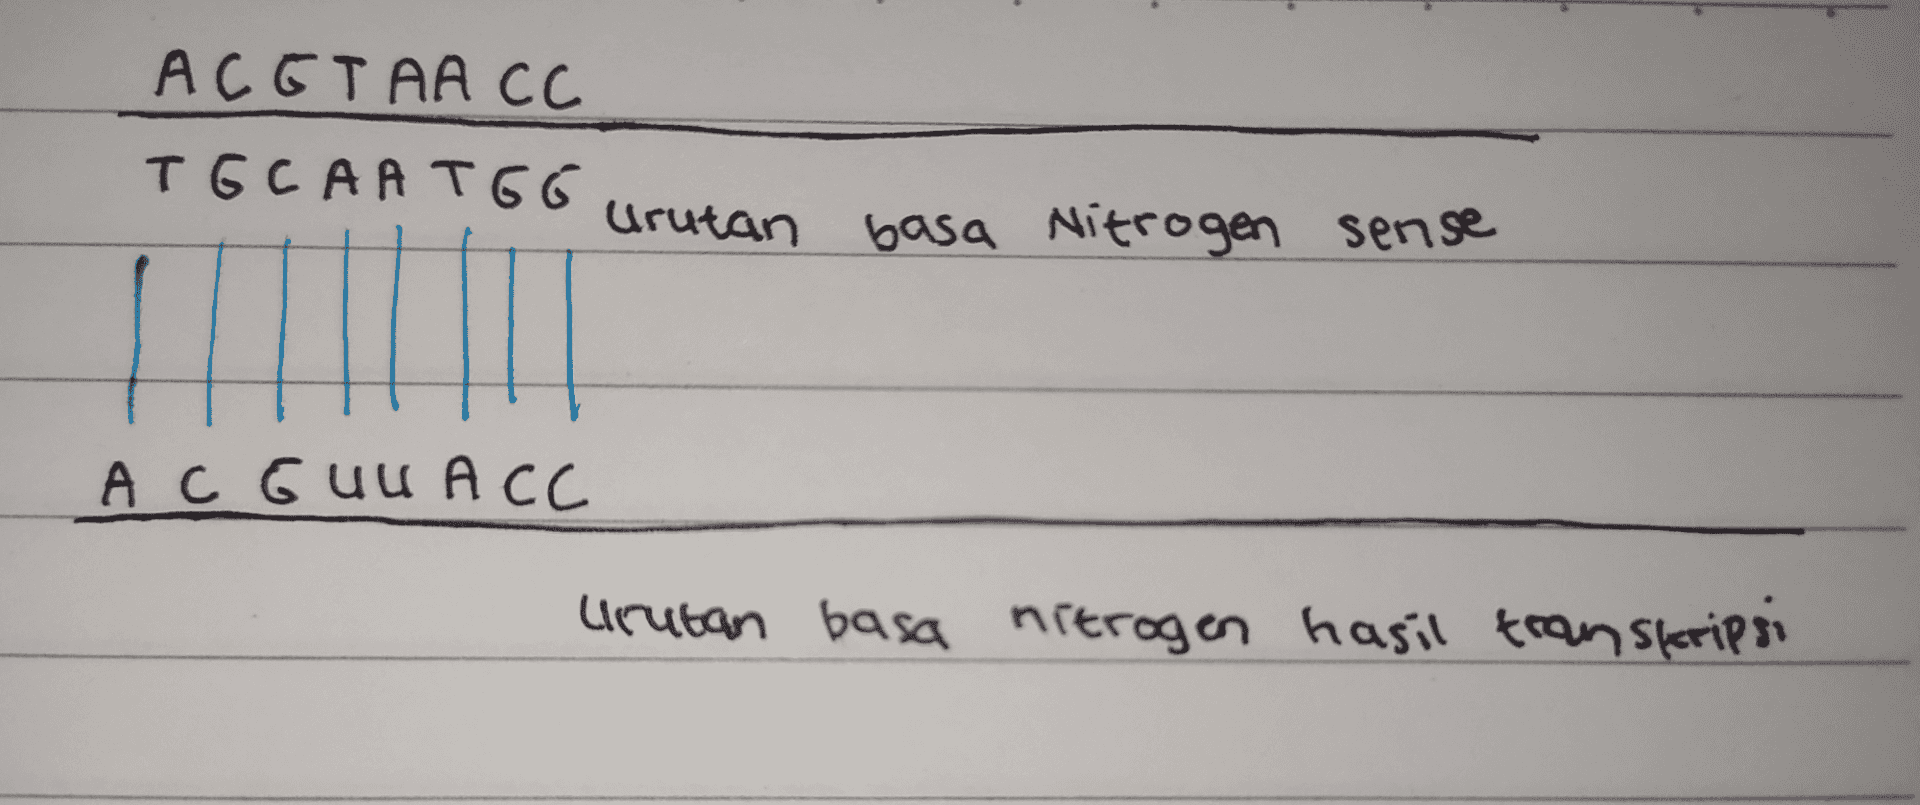 A C G T A A C C
T G C A A T G G urutan basa Nitrogen sense
A C G U U A C C
Urutan basa nitrogen hasil transkripsi